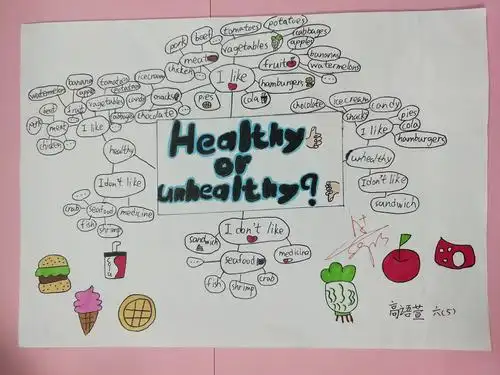 Healthy
or
unhealthy?
I like
meat
pork
beef
chicken
...
vegetables
tomatoes
potatoes
cabbages
fruit
apples
bananas
watermelons
...
hamburgers
cola
pies
snacks
icecream
candy
chocolate
...
healthy
I like
fruit
watermelons
bananas
apples
...
meat
beef
pork
chicken
...
vegetables
tomatoes
potatoes
cabbages
I don't like
seafood
crab
fish
shrimp
...
medicine
unhealthy
I like
snacks
chocolate
icecream
candy
pies
cola
hamburgers
I don't like
sandwich
I don't like
sandwich
seafood
fish
shrimp
crab
...
medicine
cola
高语萱 六(5)